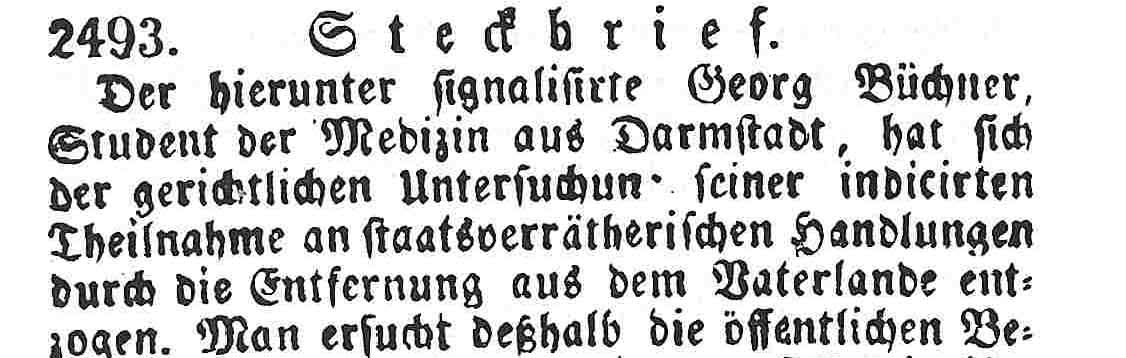 2493. Steckbrief.
Der hierunter signalisirte Georg Büchner,
Student der Medizin aus Darmstadt, hat sich
der gerichtlichen Untersuchun· seiner indicirten
Theilnahme an staatsverrätherischen Handlungen
durch die Entfernung aus dem Vaterlande ent⸗
zogen. Man ersucht deßhalb die öffentlichen Be⸗